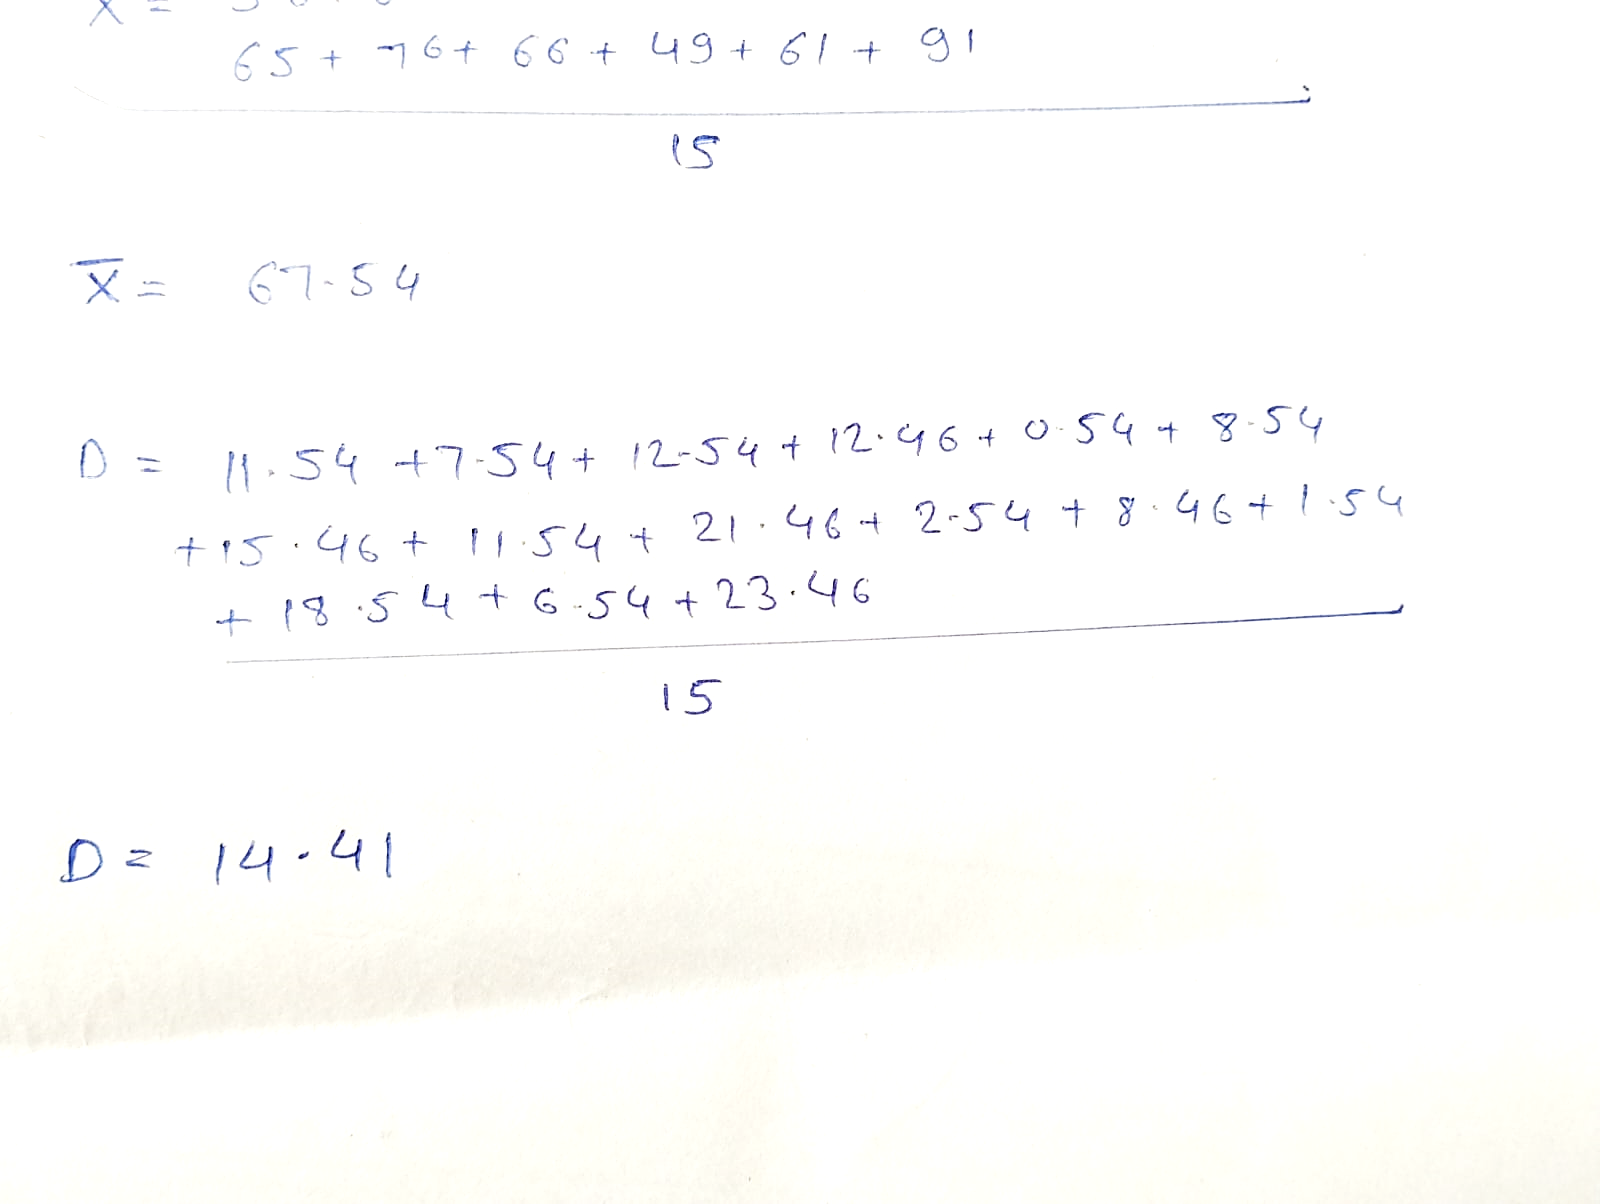 X =
65 + 76 + 66 + 49 + 61 + 91
15
X̅ = 67.54
D = 11.54 + 7.54 + 12.54 + 12.46 + 0.54 + 8.54
+ 15.46 + 11.54 + 21.46 + 2.54 + 8.46 + 1.54
+ 18.54 + 6.54 + 23.46
15
D = 14.41